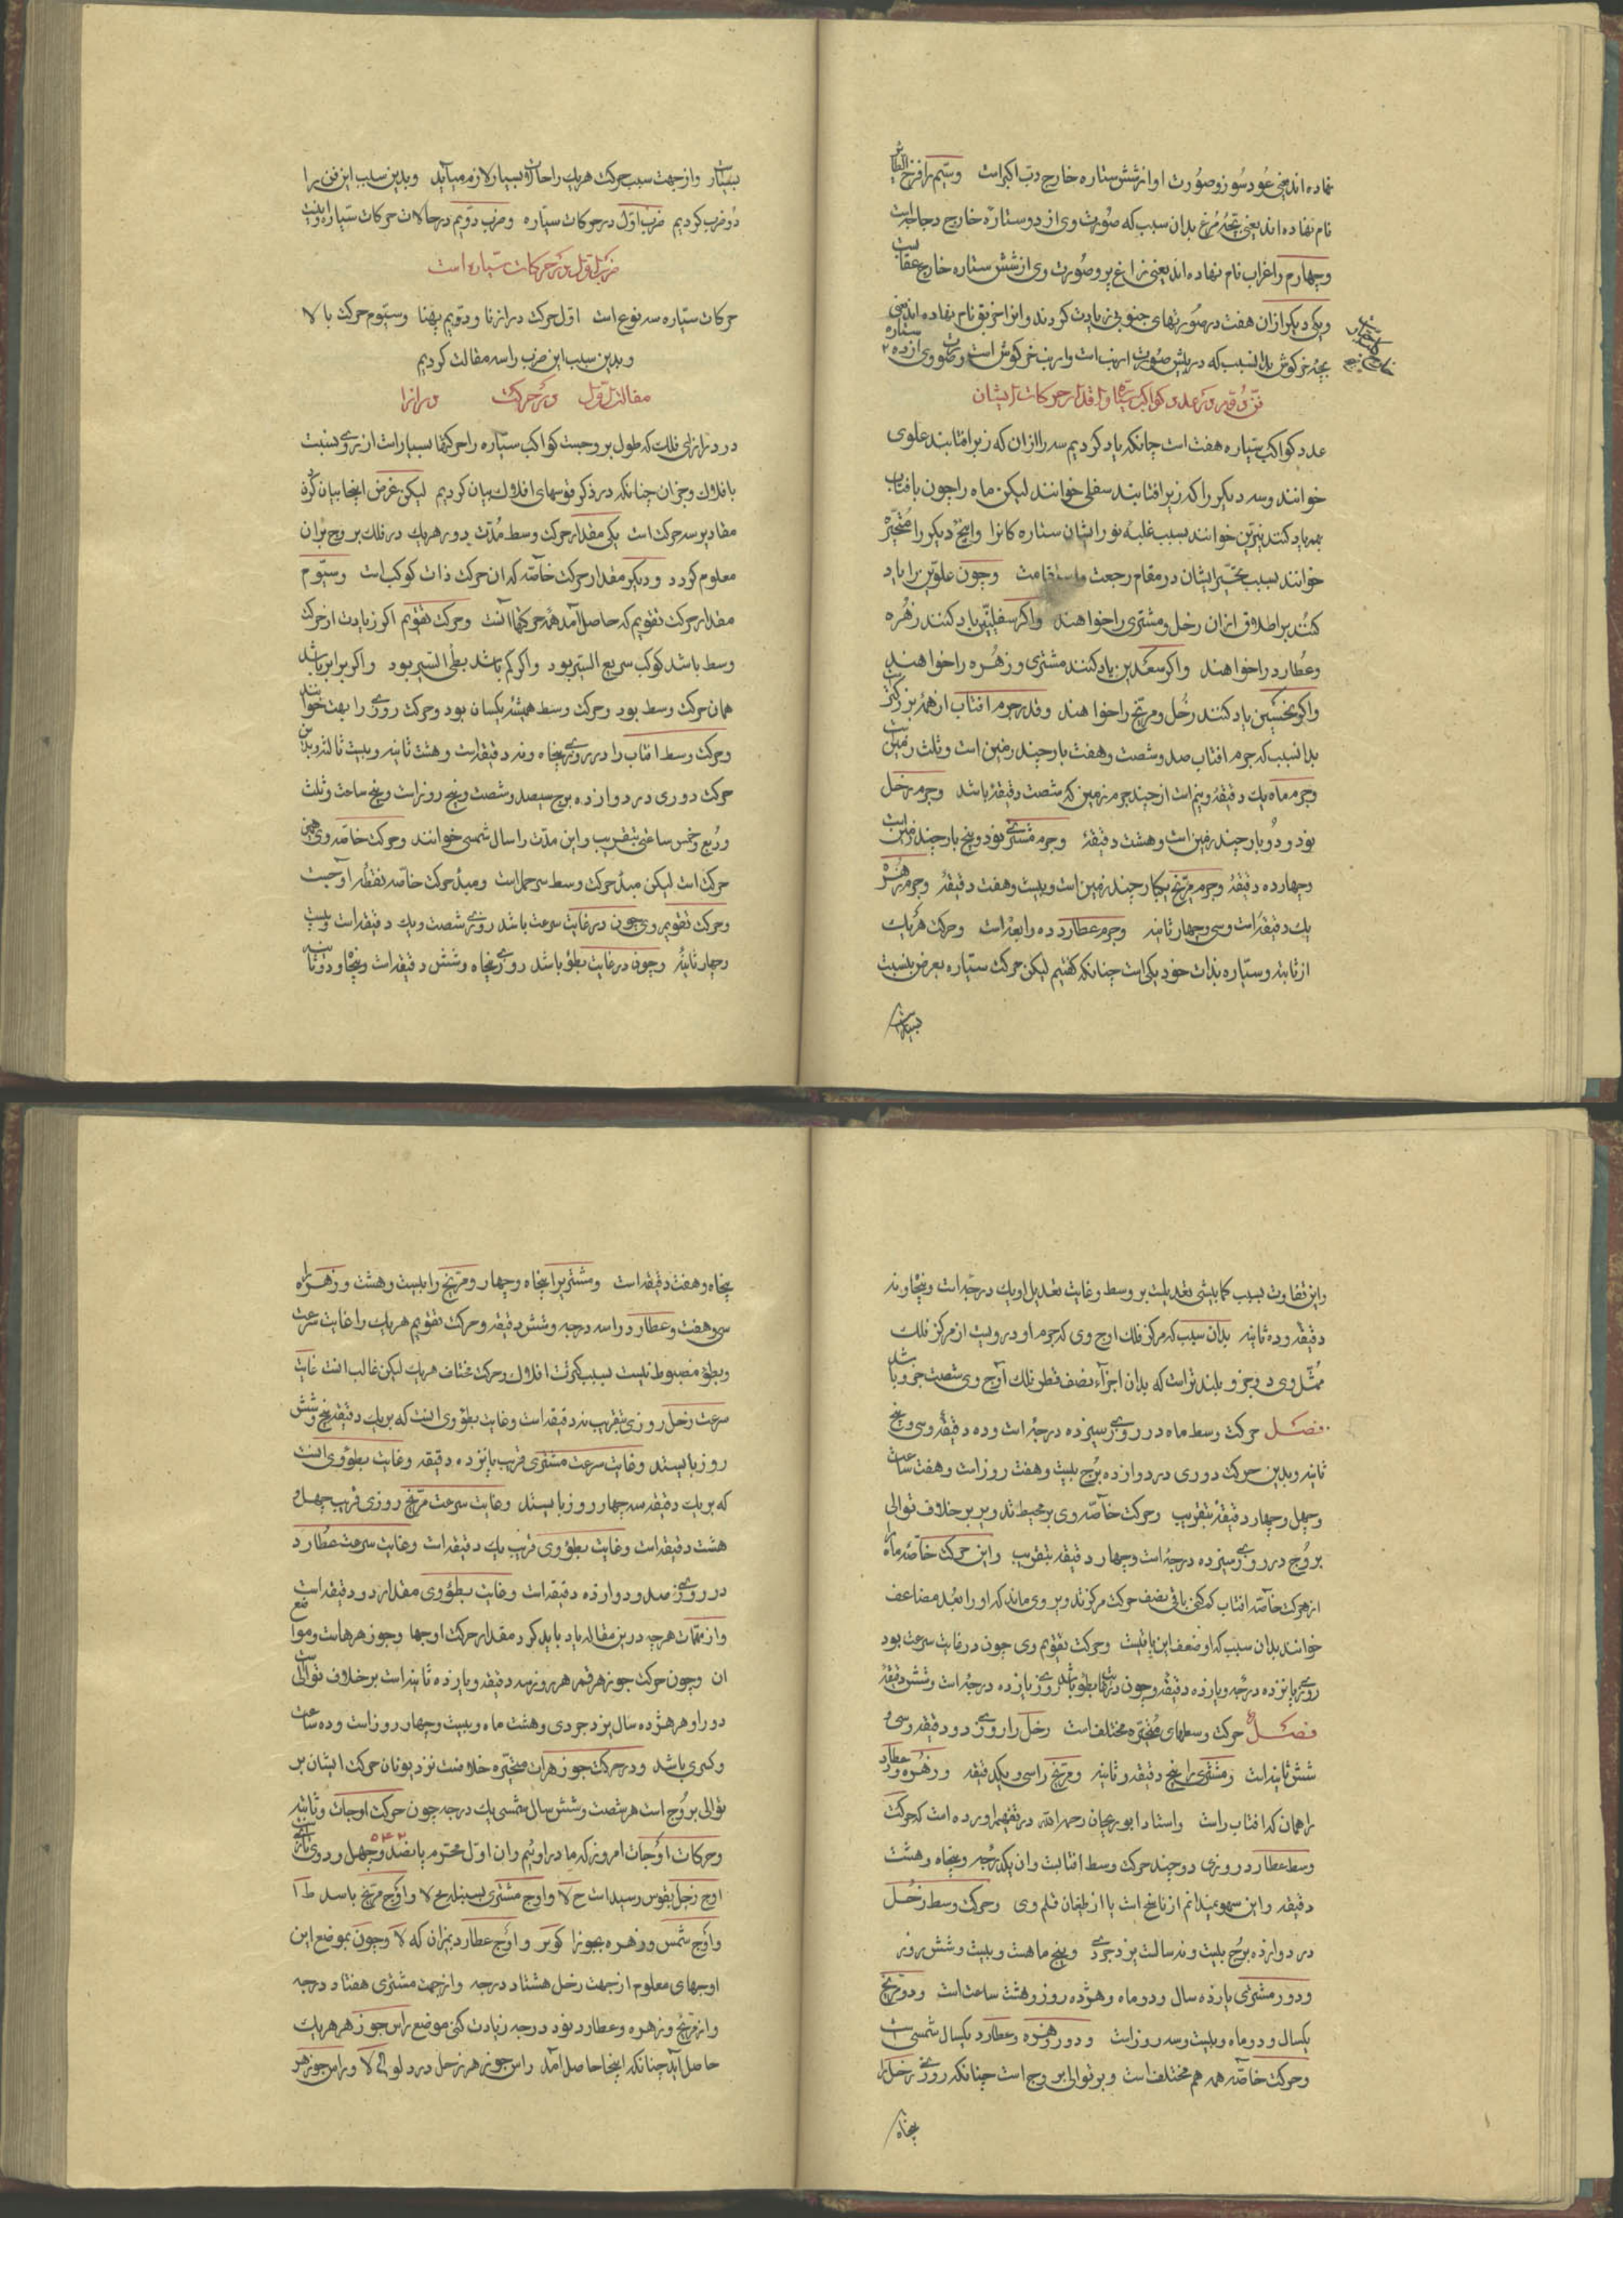 نهاده‌اند یعنی عود سوز و صورت او از شش ستاره خارج دب اکبر است وسیم را فرخ الطایر
نام نهاده‌اند یعنی بچهٔ مرغ بدان سبب که صورت وی از دو ستاره خارج دجاجه است
وچهارم را غراب نام نهاده‌اند یعنی زاغ پر و صورت وی از شش ستاره خارج عقاب است
ویکی دیکر ازان هفت در صورتهای جنوبی زیادت کردند و انرا خرنق نام نهاده‌اند یعنی
بچه خرکوش بدانسبب که در پیش صورت ارنب است وارنب خرکوش است وصورت وی از ده ستاره
فن دوم در عدد کواکب سیاره و اقدار حرکات ایشان
عدد کواکب سیاره هفت است چنانکه یاد کردیم سه را ازان که زبر افتابند علوی
خوانند وسه دیکر را که زیر افتابند سفلی خوانند لیکن ماه را چون بافتاب
بهم یاد کنند نیرین خوانند بسبب غلبهٔ نور ایشان ستاره کانرا واین پنج دیکر را متحیره
خوانند بسبب تحیر ایشان در مقام رجعت واستقامت وچون علویین را یاد
کنند بر اطلاق ازان زحل ومشتری را خواهند واکر سفلیین یاد کنند زهره
وعطارد را خواهند واکر سعدین یاد کنند مشتری وزهره را خواهند
واکر نحسین یاد کنند زحل ومریخ را خواهند وقدر جرم افتاب از همه بزرکتر است
بدانسبب که جرم افتاب صد وشصت وهفت بار چند زمین است وثلث زمین
وجرم ماه یک دقیقه ونیم است از چند جرم زمین که شصت دقیقه باشد وجرم زحل
نود ودو بار چند زمین است وهشت دقیقه وجرم مشتری نود وپنج بار چند زمین است
وچهارده دقیقه وجرم مریخ یکبار چند زمین است وبیست وهفت دقیقه وجرم زهره
یک دقیقه است وسی وچهار ثانیه وجرم عطارد ده رابعه است وحرکت هر یک
از ثابته وستاره بذات خود یکی است چنانکه کفتیم لیکن حرکت ستاره بعرض بنسبت
بسیار است
بسیار است وازجهت سبب حرکت هر یک را حالات بسیار لازم میآید وبدین سبب این فن را
دو ضرب کردیم ضرب اول در حرکات سیاره وضرب دویم در حالات حرکات سیاره اینست
ضرب اول در حرکات سیاره است
حرکات ستاره سه نوع است اول حرکت درازنا ودویم پهنا وسیوم حرکت بالا
وبدین سبب این ضرب را سه مقالت کردیم
مقالت اول در حرکت درازنا
در درازنای فلک که طول بروجست کواکب سیاره را حرکتها بسیار است از روی نسبت
بافلاک وجز ان چنانکه در ذکر قوسهای افلاک بیان کردیم لیکن غرض اینجا بیان کردن
مقادیر سه حرکت است یکی مقدار حرکت وسط مدت دور هر یک در فلک بروج بران
معلوم کردد ودیکر مقدار حرکت خاصه که ان حرکت ذات کوکب است وسیوم
مقدار حرکت تقویم که حاصل آمد همه حرکتها آنست وحرکت تقویم اکر زیادت از حرکت
وسط باشد کوکب سریع السیر بود واکر کم باشد بطی السیر بود واکر برابر باشد
همان حرکت وسط بود وحرکت وسط همیشه یکسان بود وحرکت روزی را بهت خوانند
وحرکت وسط افتاب را در روزی پنجاه ونه دقیقه است وهشت ثانیه وبیست ثالثه وبدین
حرکت دوری در دوازده برج سیصد وشصت وپنج روز است وپنج ساعت وثلث
وربع وخمس ساعتی بتقریب واین مدت را سال شمسی خوانند وحرکت خاصه وی همین
حرکت است لیکن مبدأ حرکت وسط سر حمل است ومبدأ حرکت خاصه نقطهٔ اوجست
وحرکت تقویم وی چون در غایت سرعت باشد روزی شصت ویک دقیقه است وبیست
وچهار ثانیه وچون در غایت بطؤ باشد روزی پنجاه وشش دقیقه است وپنجاه ودو ثانیه
واین تفاوت بسبب کمابیشی تعدیلست بر وسط وغایت تعدیل او یک درجه است وپنجاه ونه
دقیقه وده ثانیه بدان سبب که مرکز فلک اوج وی که جرم او درویست از مرکز فلک
ممثل وی دو جزو بلندتر است که بدان اجزاء نصف قطر فلک اوج وی شصت جزو باشد
فصل حرکت وسط ماه در روزی سیزده درجه است وده دقیقه وسی وپنج
ثانیه وبدین حرکت دوری در دوازده برج بیست وهفت روز است وهفت ساعت
وچهل وچهار دقیقه بتقریب وحرکت خاصه وی بر محیط تدویر بر خلاف توالی
بروج در روزی سیزده درجه است وچهار دقیقه بتقریب واین حرکت خاصه ماه را
از حرکت خاصه افتاب کم کنی باقی نصف حرکت مرکز تدویر وی ماند که او را بعد مضاعف
خوانند بدان سبب که او ضعف این باقیست وحرکت تقویم وی چون در غایت سرعت بود
روزی پانزده درجه ویازده دقیقه وچون در غایت بطؤ باشد روزی یازده درجه است وشش دقیقه
فصل حرکت وسطهای متحیره مختلف است زحل را روزی دو دقیقه وسی و
شش ثانیه است ومشتری را پنج دقیقه وثانیه ومریخ را سی ویکدقیقه وزهره وعطارد
را همان که افتاب راست واستاد ابوریحان رحمه الله در تفهیم اورده است که حرکت
وسط عطارد روزی دوچند حرکت وسط افتابست وان یکدرجه وپنجاه وهشت
دقیقه واین سهو نمیدانم از ناسخ است یا از طغیان قلم وی وحرکت وسط زحل
در دوازده برج بیست ونه سالست یزدجردی وپنج ماهست وبیست وشش روز
ودور مشتری یازده سال ودو ماه وهژده روز وهشت ساعت است ودور مریخ
یکسال ودو ماه وبیست وسه روز است ودور زهره وعطارد یکسال شمسی است
وحرکت خاصه همه هم مختلف است وبر توالی بروج است چنانکه روزی زحل را
پنجاه
پنجاه وهفت دقیقه است ومشتری را پنجاه وچهار ومریخ را بیست وهشت وزهره را
سی وهفت وعطارد را سه درجه وشش دقیقه وحرکت تقویم هر یک را غایت سرعت
وبطؤ مضبوط نیست بسبب کثرت افلاک وحرکت مختلف هر یک لیکن غالب انست غایت
سرعت زحل روزی بتقریب نه دقیقه است وغایت بطؤ وی انست که بر یک دقیقه پنج وشش
روز بایستد وغایت سرعت مشتری قریب پانزده دقیقه وغایت بطؤ وی انست
که بر یک دقیقه سه چهار روز بایستد وغایت سرعت مریخ روزی قریب چهل و
هشت دقیقه است وغایت بطؤ وی قریب یک دقیقه است وغایت سرعت عطارد
در روزی صد ودوازده دقیقه است وغایت بطؤ وی مقدار دو دقیقه است
واز متممات هرچه درین مقاله یاد باید کرد مقدار حرکت اوجها وجوزهرهاست ومواضع
ان وچون حرکت جوزهر قمر هر روز سه دقیقه ویازده ثانیه است بر خلاف توالیست
دور او هر هژده سال یزدجردی وهشت ماه وبیست وچهار روز است وده ساعت
وکسری باشد ودر حرکت جوزهرات متحیره خلافست نزد یونان حرکت ایشان بر
توالی بروج است هر شصت وشش سال شمسی یک درجه چون حرکت اوجات وثابته
وحرکات اوجات امروز که ما در اوئیم وان اول محرم پانصد وچهل ودوی تازی ۵۴۲
اوج زحل بقوس رسیداست ح لا واوج مشتری بسنبله لح لا واوج مریخ باسد ط ا
واوج شمس وزهره بجوزا کوبر واوج عطارد بمیزان که لا وچون بموضع این
اوجهای معلوم از جهت زحل هشتاد درجه وازجهت مشتری هفتاد درجه
واز مریخ وزهره وعطارد نود درجه زیادت کنی موضع راس جوزهر هر یک
حاصل آید چنانکه اینجا حاصل آمد راس جوزهر زحل در دلو لا وراس جوزهر